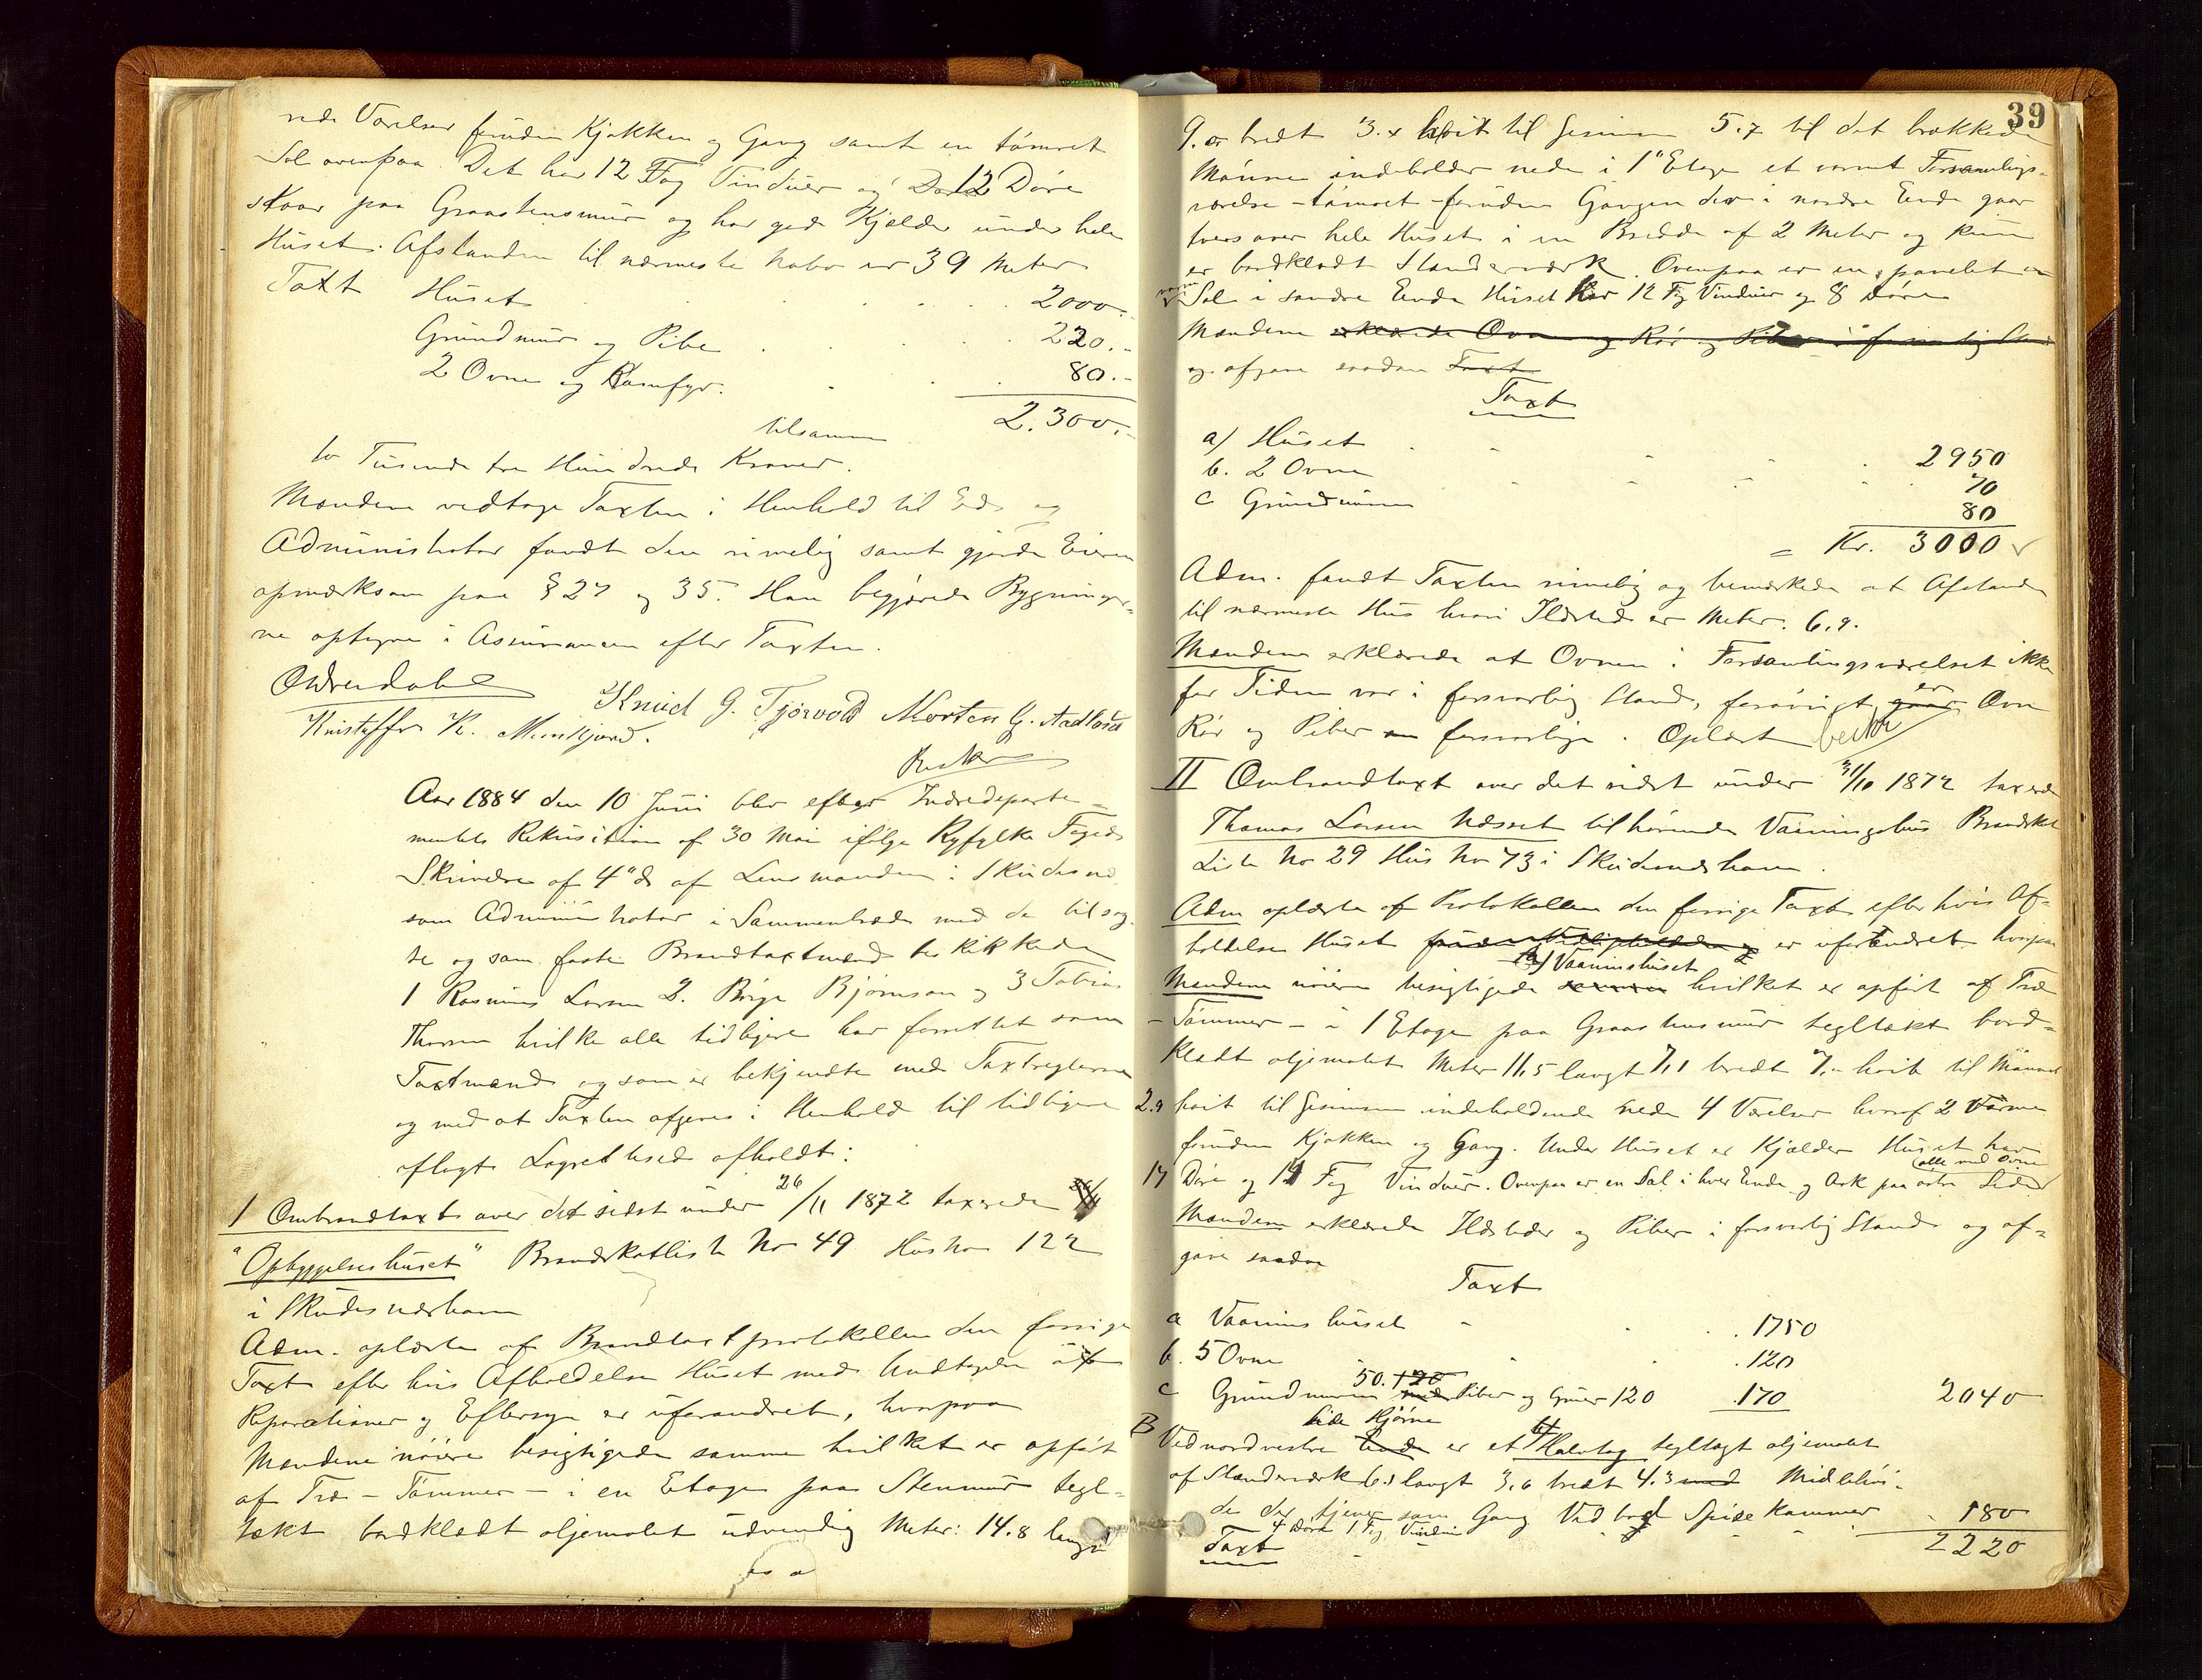 nede Værelser foruden Kjøkken og Gang samt en tømret
Sal ovenpaa. Det har 12 Fag Vinduer og 12 Døre
staar paa Graastensmur og har god Kjælder under hele
Huset. Afstanden til nærmeste Nabo er 39 Meter
Taxt Huset 2000.-
Grundmur og Pibe 220.-
2 Ovne og Komfyr. 80.-
tilsammen 2.300.-
to Tusinde tre Hundrede Kroner.
Mændene vedtoge Taxten i Henhold til Ed og
Administrator fandt den rimelig samt gjorde Eieren
opmærksom paa § 27 og 35. Han begjærede Bygninger-
ne optagne i Assurancen efter Taxten.
Knud G. Tjøsvold Morten G. Aadland
Kristoffer K.
Aar 1884 den 10 Juni blev efter Indredeparte-
mentets Rekvisition af 30 Mai ifølge Ryfylke Fogeds
Skrivelse af 4" ds af Lensmanden i Skudesnes
som Administrator i Sammentræde med de tilsag-
te og som faste Brandtaxtmænd beskikkede
1 Rasmus Larsen 2. Børge Bjørnson og 3 Tobias
Thorsen hvilke alle tidligere har forrettet som
Taxtmænd og som er bekjendte med Taxtreglerne
og med at Taxten afgives i Henhold til tidligere
aflagt Lagrettesed afholdt:
1 Ombrandtaxt over det sidst under 26/11 1872 taxerede
"Opbyggelseshuset" Brandskatliste No 49 Hus No 122
i Skudesneshavn
Adm. oplæste af Brandtaxtprotokollen den forrige
Taxt efter hvis Afholdelse Huset med Undtagelse af
Reparationer og Eftersyn er uforandret, hvorpaa
Mændene nøiere besigtigede samme hvilket er opført
af Træ - Tømmer - i en Etage paa Stenmur tegl-
tækt bordklædt oljemalet udvendig Meter: 14.8 langt
39
9. er bredt 3.x høit til Gesimsen 5.7 til det brækkede
Mønne indeholder nede i 1" Etage et varmt Forsamlings-
værelse - tømret - foruden Gangen der i nordre Ende gaar
tvers over hele Huset i en Bredde af 2 Meter og kun
er bordklædt Standerværk. Ovenpaa er en panelet
varm Sal i søndre Ende Huset har 12 Fag Vinduer og 8 Døre
Mændene erklærede Ovne og Rør og Piber i forsvarlig Stand
og afgave saadan Taxt
Taxt
a) Huset 2950
b. 2 Ovne 70
c Grundmuren 80
= Kr. 3000
Adm. fandt Taxten rimelig og bemærkede at Afstanden
til nærmeste Hus hvori Ildsted er Meter. 6.9.
Mændene erklærede at Ovnen i Forsamlingsværelset ikke
for Tiden var i forsvarlig Stand, forøvrigt er Ovn
Rør og Piber forsvarlige. Oplæst
II Ombrandtaxt over det sidst under 31/10 1872 taxerede
Thomas Larsen Næsset tilhørende Vaaningshus Brandskat
Liste No 29 Hus No 73 i Skudesneshavn.
Adm oplæste af Protokollen den forrige Taxt efter hvis Af-
holdelse Huset er uforandret hvorpaa
a) Vaaningshuset
Mændene nøiere besigtigede samme hvilket er opført af Træ
- Tømmer - i 1 Etage paa Graastensmur tegltækt bord-
klædt oljemalet Meter 11,5 langt 7,1 bredt 7.- høit til Mønnet
2.9 høit til Gesimsen indeholdende nede 4 Værelser hvoraf 2 Varme
foruden Kjøkken og Gang. Under Huset er Kjælder Huset har
17 Døre og 14 Fag Vinduer. Ovenpaa er en Sal i hver Ende og Ark paa østre Side (alle med Ovne
Mændene erklærede Ildsteder og Piber i forsvarlig Stand og af-
gave saadan
Taxt
a Vaaningshuset 1750
b. 5 Ovne 120
c Grundmuren 50. Piber og Gruer 120 170 2040
B Ved nordvestre Hjørne er et Halvtag tegltagt oljemalet
af Standerværk 6.3 langt 3,6 bredt 4.3 Middelhøi-
de der tjener som Gang Vedbod Spisekammer
4 Døre 1 Fag Vindu 180
Taxt 2220